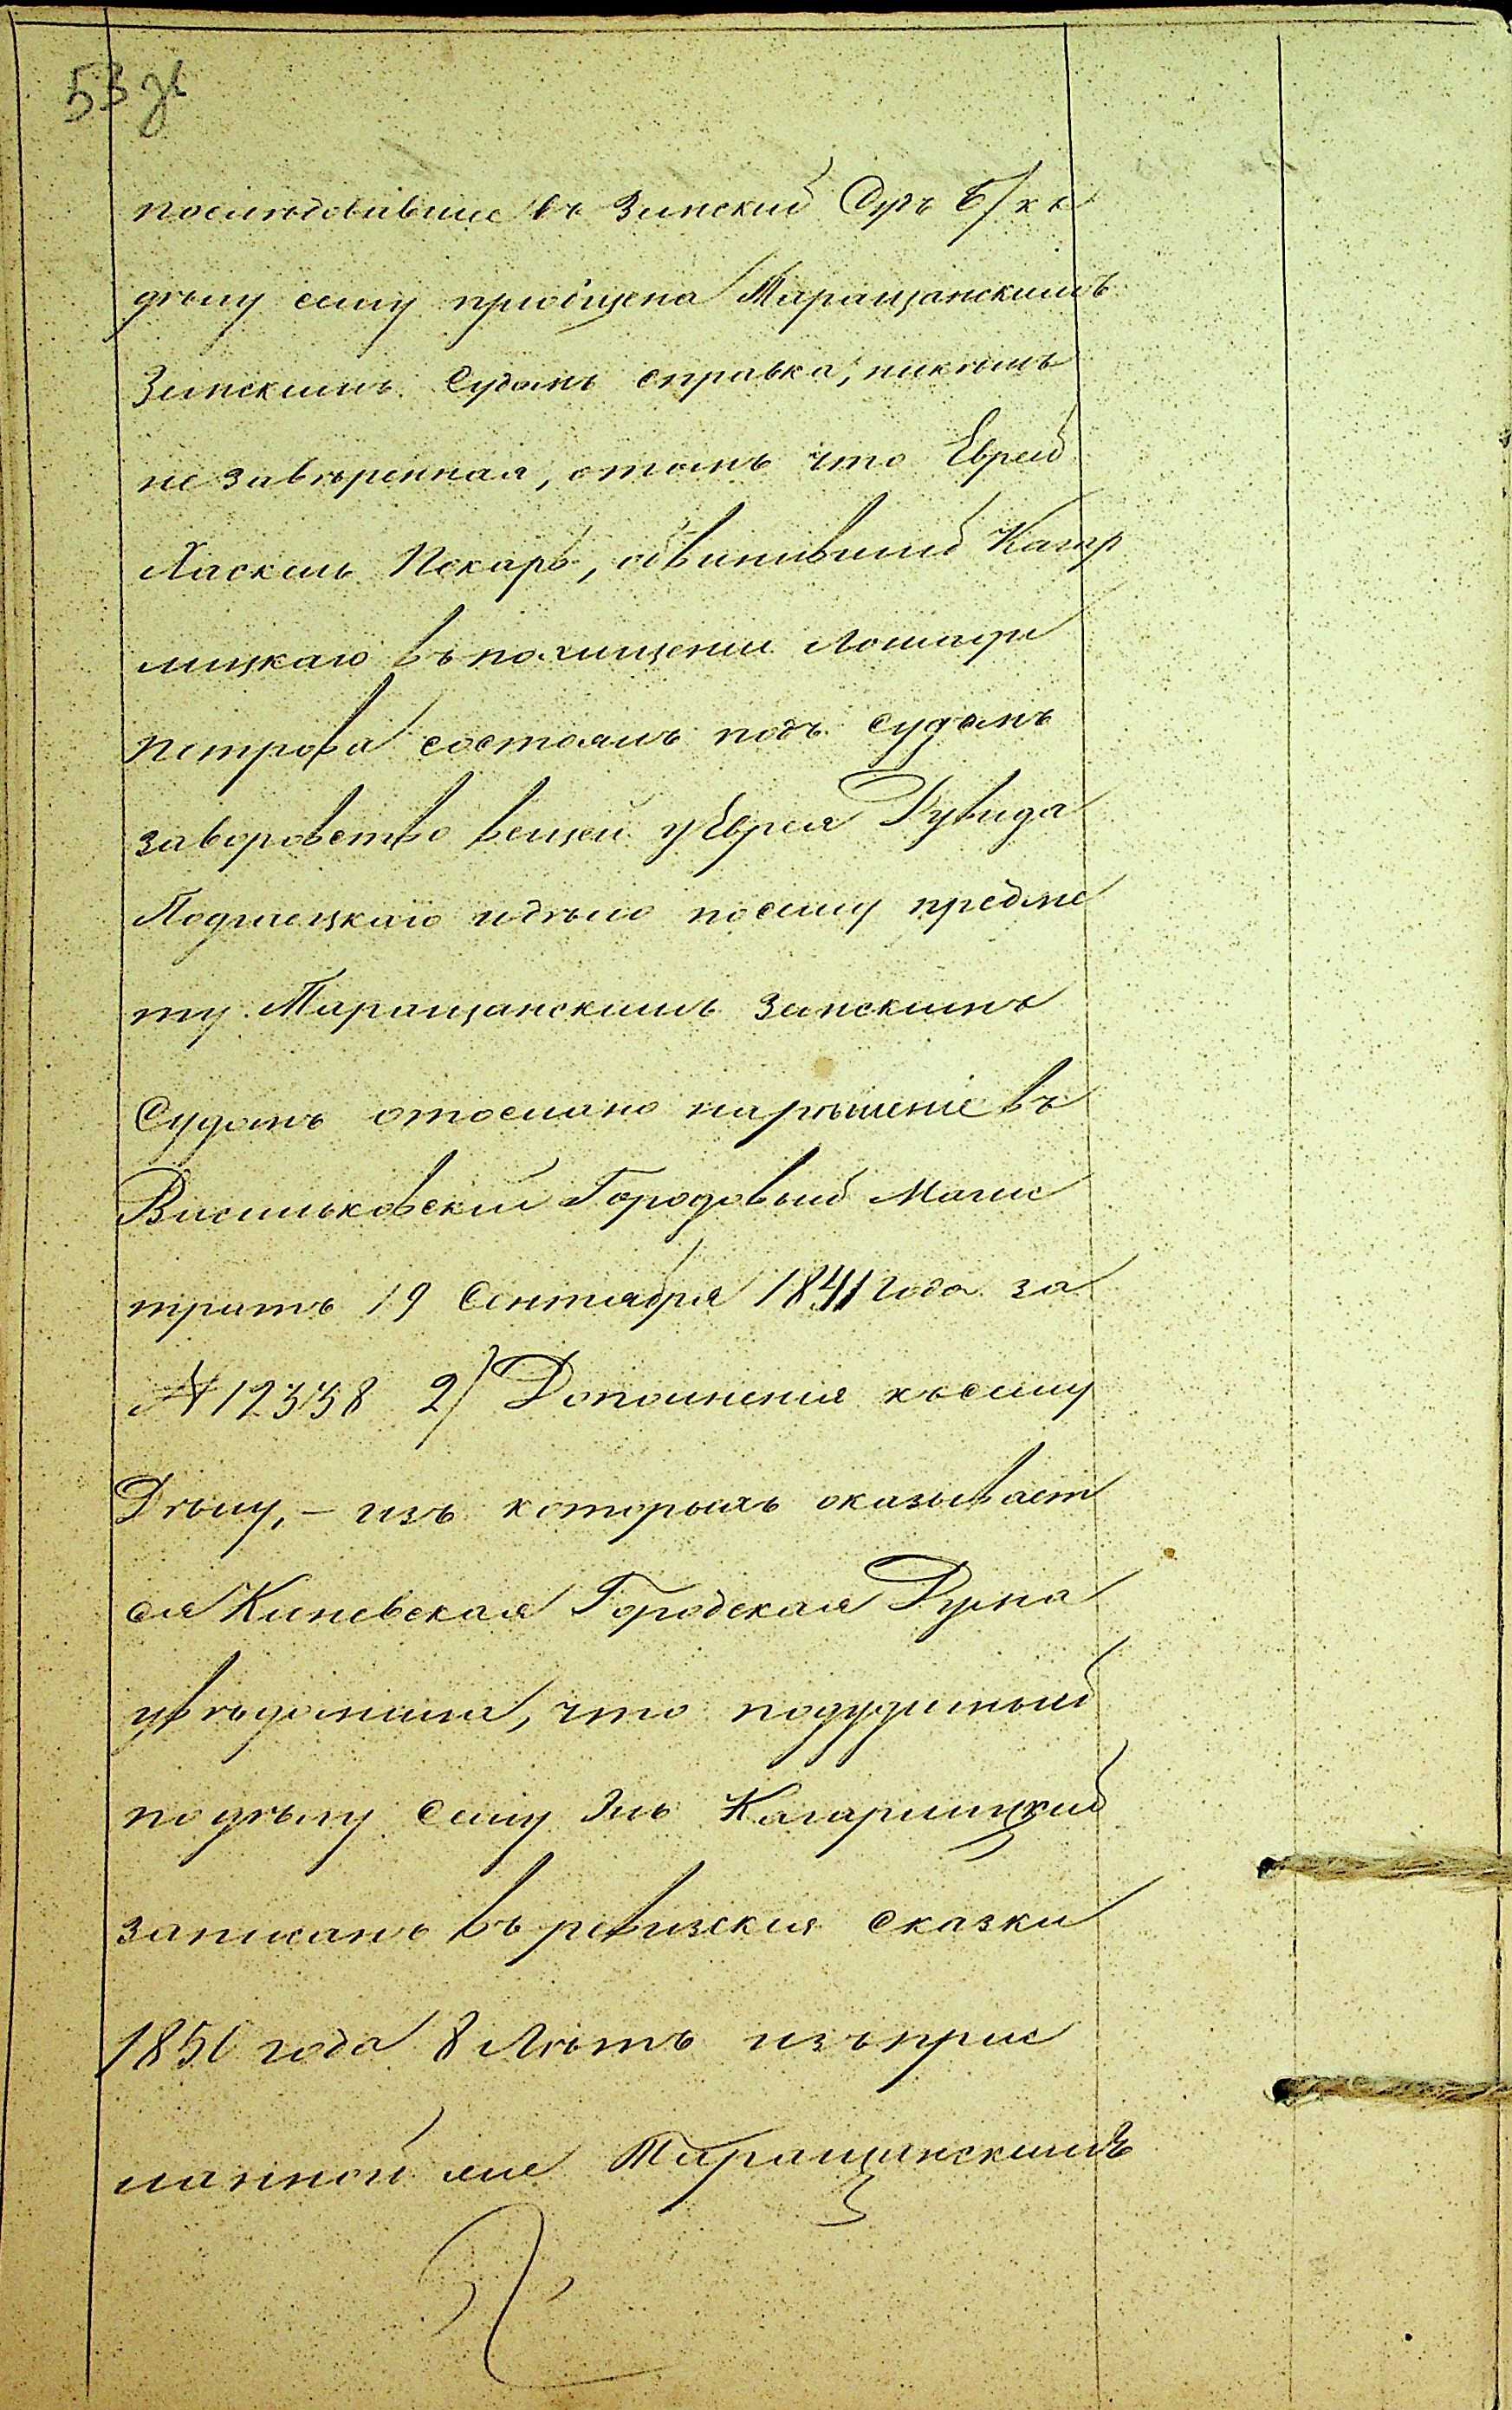 53 зв
последовавшее въ Земский Судъ б/ къ
делу сему приобщена Таращанскимъ
Земскимъ Судомъ справка, никѣмъ
не завѣренная, отомъ что Еврей
Хаскель Пекарь, обвинявший Кагар
лицкаго въ похищении Лошади
Петрова состоялъ подъ судомъ
заворовство вещей уЕврея Дувида
Подгаецкаго идѣло посему предме
ту Таращанскимъ Земскимъ
Судомъ отослано нарѣшеніе въ
Васильковский Городовый Магис
тратъ 19 Сентября 1841 года за
№ 12338 2/ Дополнения късему
Дѣлу, – изъ которыхъ оказывает
ся Киевская Городская Дума
увѣдомила, что подсудимый
подѣлу Сему Эль Кагарлицкий
записанъ въ ревизския Сказки
1850 года 8 Лѣтъ изъприс
ланной ему Таращанскимъ